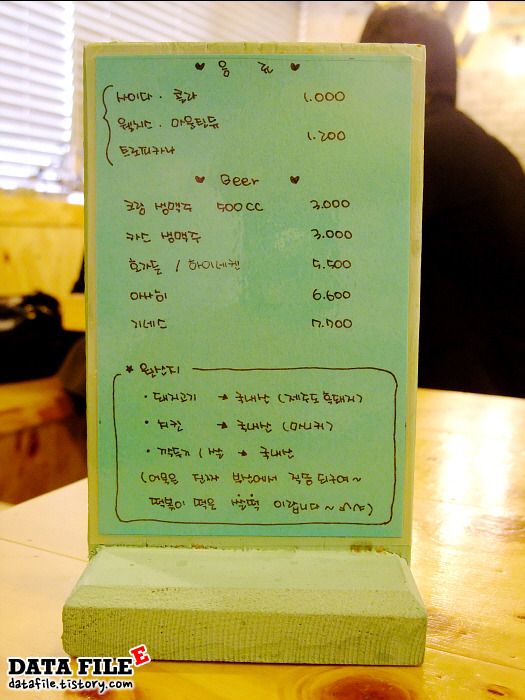 ♥ 음 료 ♥
사이다 · 콜라 1.000
웰치스 · 마운틴듀 1.200
트로피카나
♥ Beer ♥
크림 생맥주 500CC 3.000
카스 생맥주 3.000
호가든 / 하이네켄 5.500
아사히 6.600
기네스 7.700
* 원산지
· 돼지고기 → 국내산 (제주도 흑돼지)
· 치킨 → 국내산 (마니커)
· 깍두기 / 쌀 → 국내산
(어묵은 진짜 부산에서 직송되구여~
떡볶이 떡은 쌀떡 이랍니다~ ^^)
DATA FILE E
datafile.tistory.com